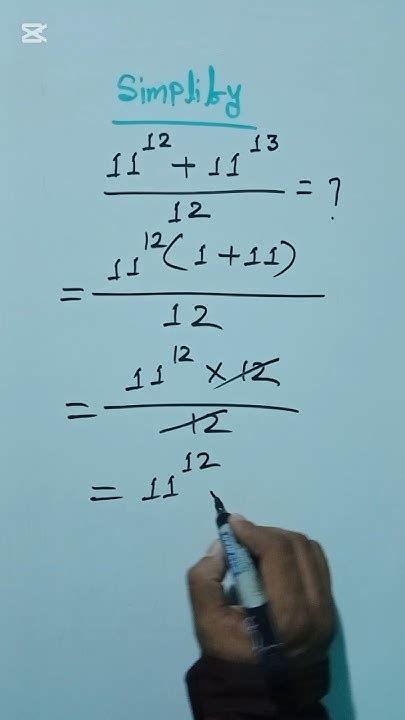 Simplify
11^12 + 11^13 / 12 = ?
= 11^12 (1 + 11) / 12
= 11^12 × 12 / 12
= 11^12